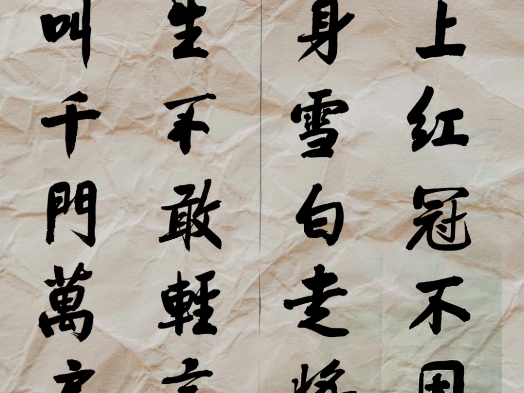 上红冠不因
身雪白走將
生不敢輕
叫千門萬